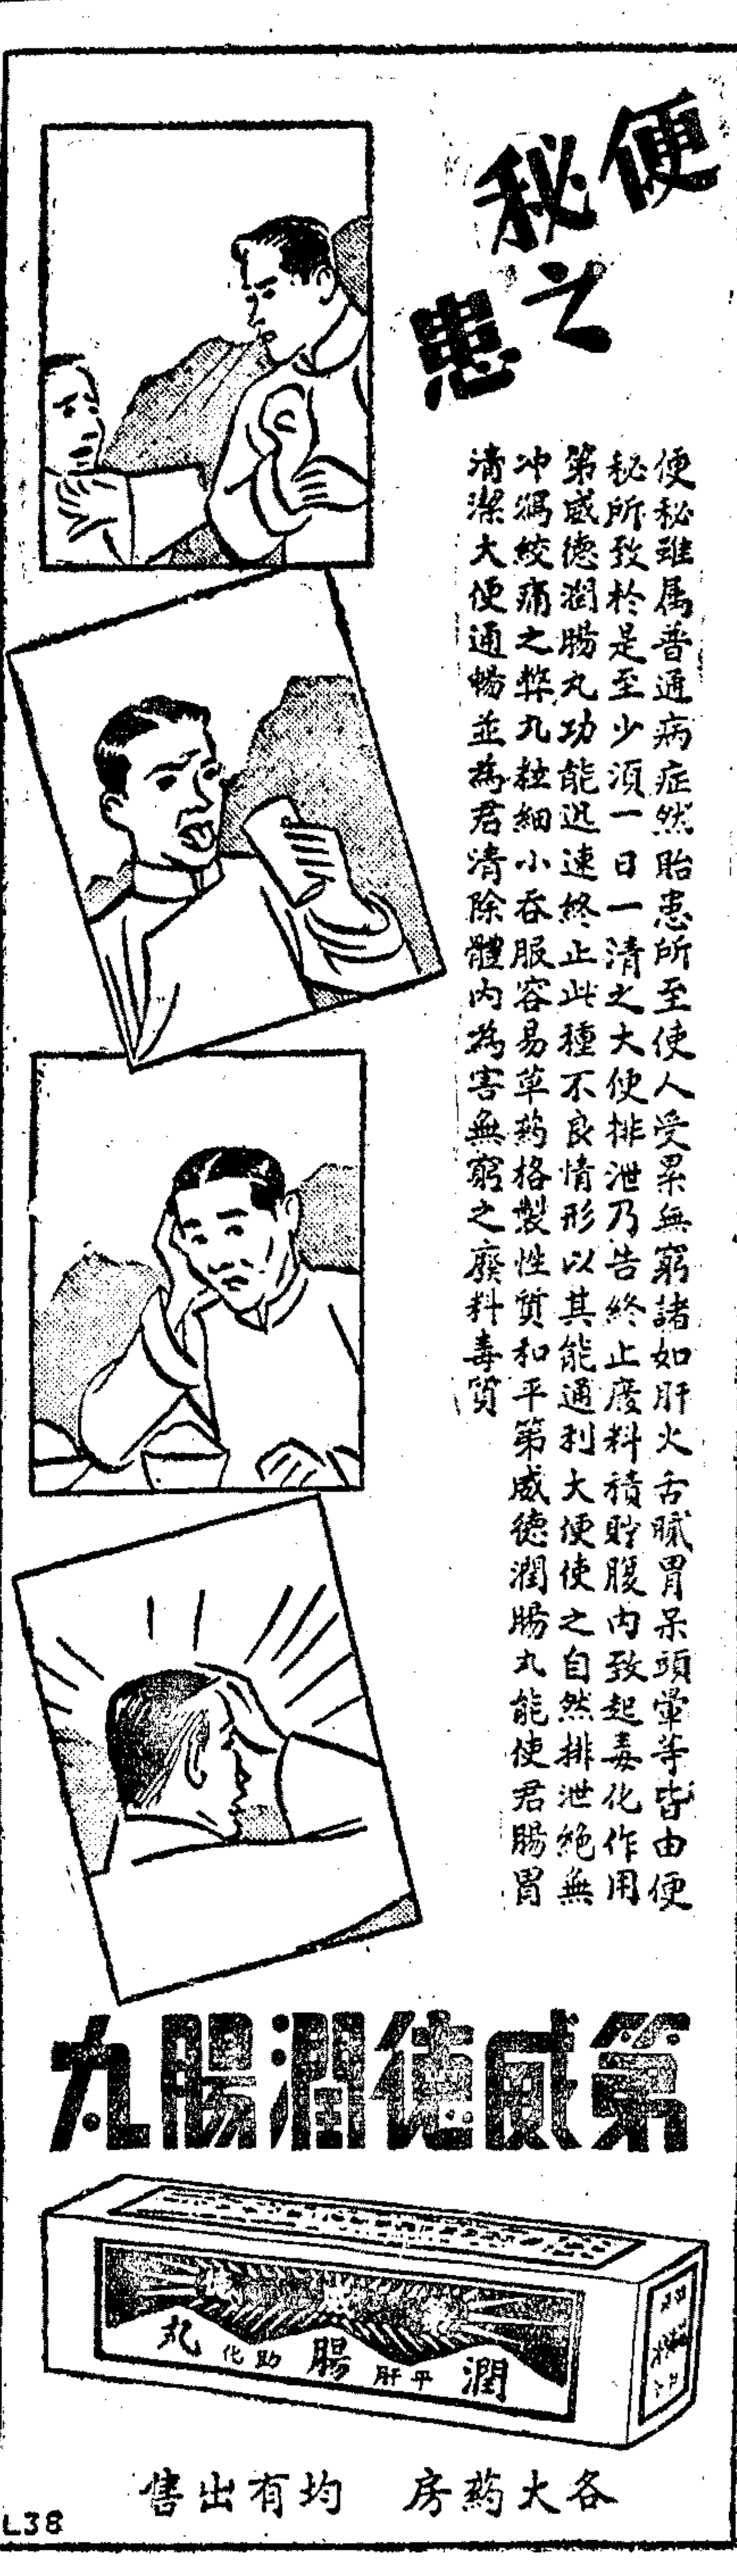 便秘之患
便秘雖属普通病症然貽患所至使人受累無窮諸如肝火舌膩胃呆頭暈等皆由便
秘所致於是至少須一日一清之大便排泄乃告終止廢料積貯腹内致起毒化作用
第威德潤腸丸功能迅速終止此種不良情形以其能通利大便使之自然排泄絶無
冲瀉絞痛之弊丸粒細小吞服容易草药格製性質和平第威德潤腸丸能使君腸胃
清潔大便通暢並為君清除體内為害無窮之廢料毒質
第威德潤腸丸
潤腸丸
平肝
助化
各大药房 均有出售
L38